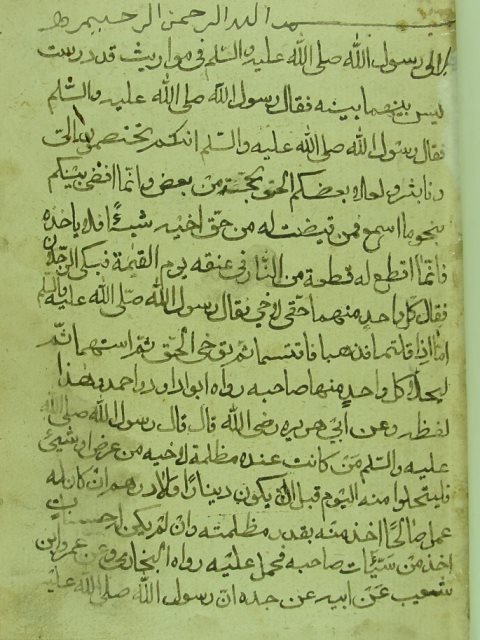 بسم الله الرحمن الرحيم
الى رسول الله صلى الله عليه والسّلم فى مواريث قد درست
ليس بينهما بينه فقال رسول الله صلى الله عليه والسّلم
فقال رسول الله صلى الله عليه والسّلم انكم تختصمون الىّ
وانا بشر ولعل بعضكم الحن بحجّته من بعض وانّما اقضى بينكم
بنحو ما اسمع فمن قضيت له من حقّ اخيه شيئاً فلا ياخذه
فانّما اقطع له قطعة من النّار فى عنقه يوم القيمة فبكى الرّجلان
فقال كلّ واحدٍ منهما حقّى لاخى فقال رسول الله صلّى الله عليه والسّلم
امّا اذا قلتما فاذهبا فاقتسما ثم توخى الحقّ ثمّ استهما ثمّ
ليحلل كلّ واحدٍ منهما صاحبه رواه ابو داود واحمد وهذا
لفظه وعن ابى هريره رضى الله قال قال رسول الله صلى الله
عليه والسّلم مَنْ كانت عنده مظلمة لاخيه من عرض او شيئ
فليتحلّلوا منه اليوم قبل ان لا يكون دينارًا ولا درهم ان كان له
عمل صالحًا اخذ منه بقدر مظلمته وان لم يكن له حسنات
اخذ من سيّئات صاحبه فحمل عليه رواه البخارى وعن عمرو ابن
شعيب عَنْ ابيه عن جده انّ رسول الله صلى الله عليه